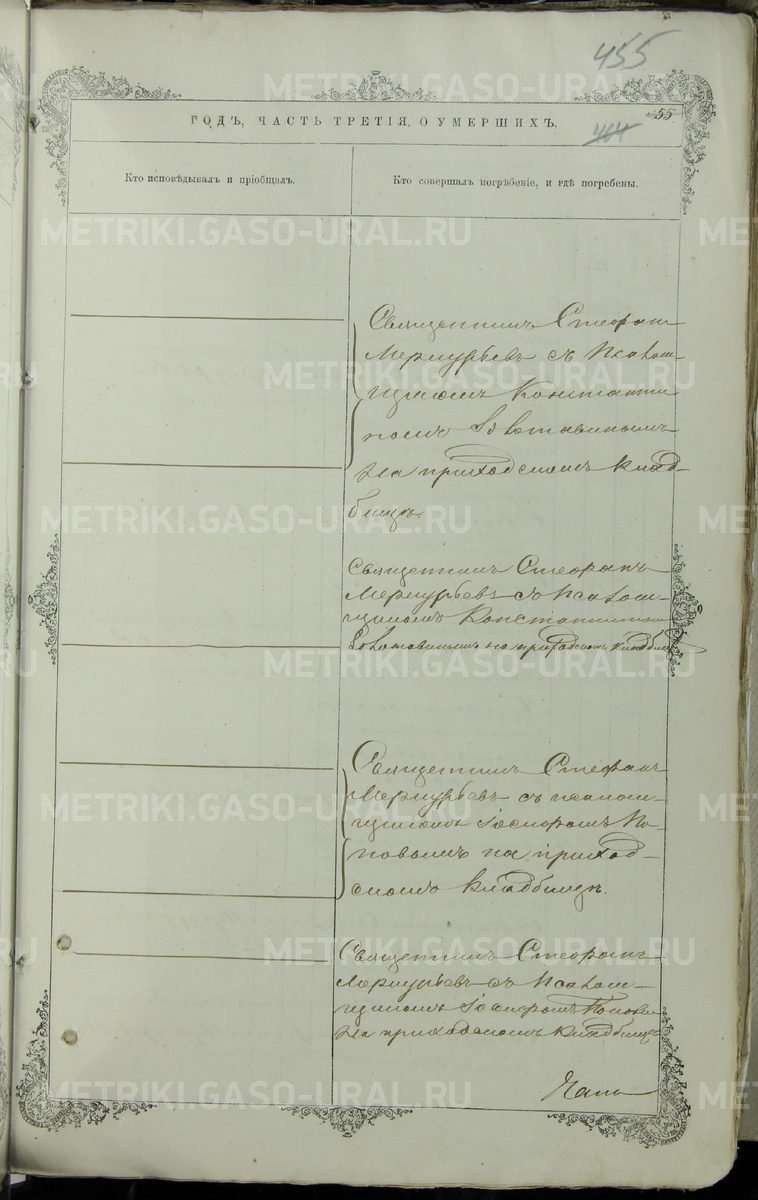 455
ГОДЪ, ЧАСТЬ ТРЕТІЯ, О УМЕРШИХЪ.
55
464
Кто исповѣдывалъ и пріобщалъ.
Кто совершалъ погребеніе, и гдѣ погребены.
Священникъ Стефанъ
Меркурьевъ съ Псалом-
щикомъ Константи
номъ
на приходскомъ клад-
бищѣ.
Священникъ Стефанъ
Меркурьевъ съ Псалом-
щикомъ Константином
на приходскомъ кладбищѣ
Священникъ Стефанъ
Меркурьевъ съ псалом-
щикомъ Іосифомъ По-
повымъ на приход-
скомъ кладбищѣ.
Священникъ Стефанъ
Меркурьевъ съ Псалом-
щикомъ Іосифомъ Поповы
на приходскомъ кладбищѣ
METRIKI.GASO-URAL.RU